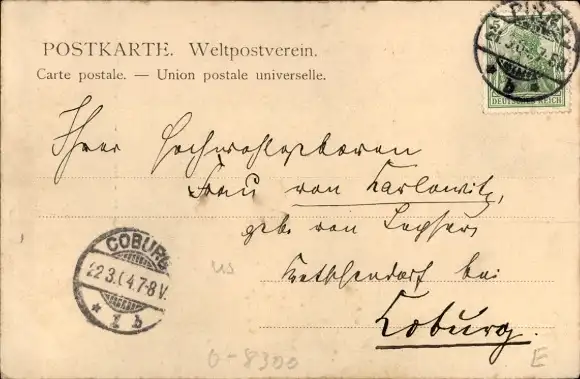 POSTKARTE. Weltpostverein.
Carte postale. — Union postale universelle.
DEUTSCHES REICH
Ihrer Hochwohlgeboren
Frau von Karlowitz,
geb. von
bei
Koburg.
COBURG
22.3.04.7-8V.
* 1 b
* b *
us
0-8300
E